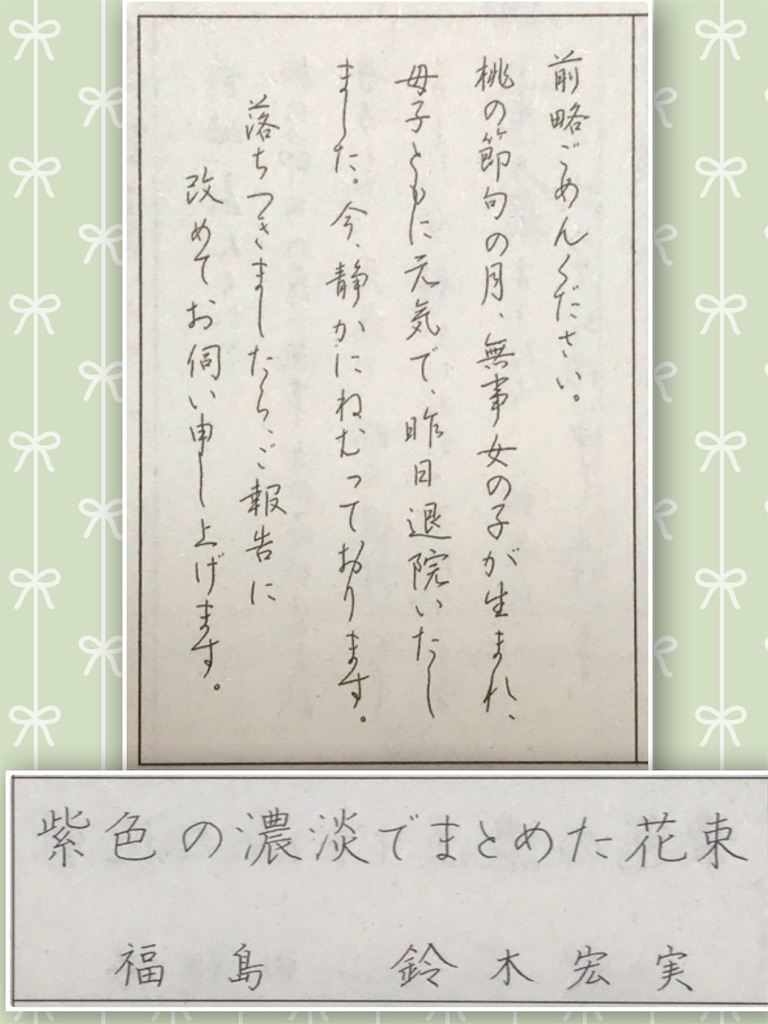 前略ごめんください。
桃の節句の月、無事女の子が生まれ、
母子ともに元気で、昨日退院いたし
ました。今、静かにねむっております。
落ちつきましたら、ご報告に
改めてお伺い申し上げます。
紫色の濃淡でまとめた花束
福島 鈴木宏実